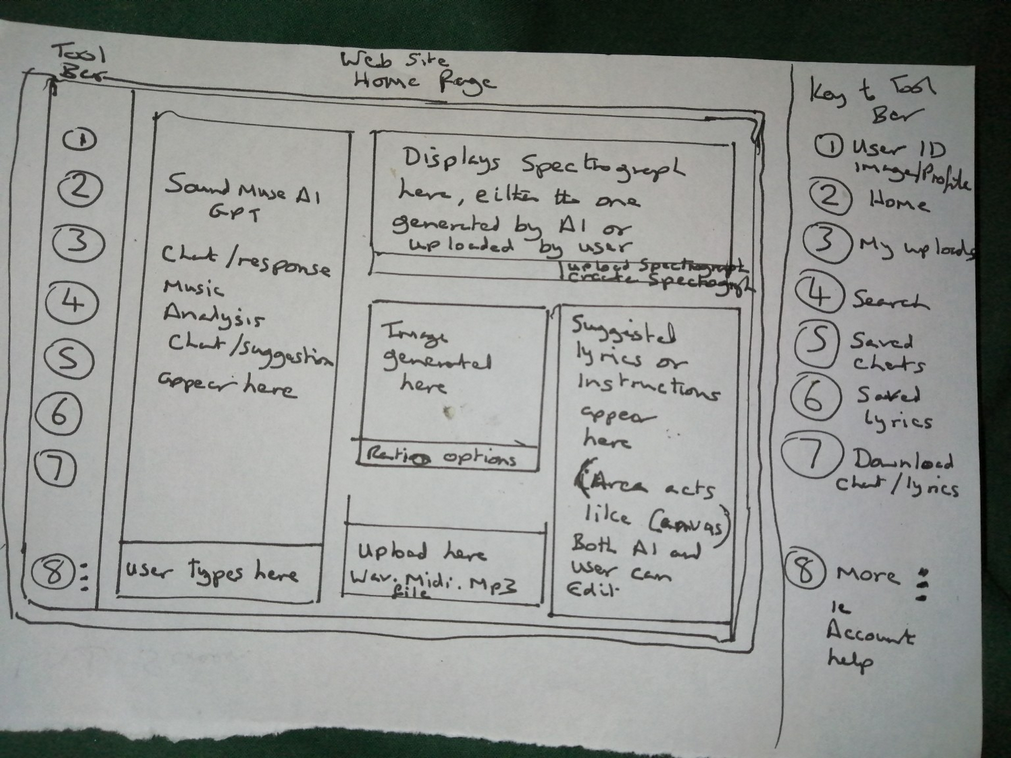 Tool
Bar
Web Site
Home Page
1
2
3
4
5
6
7
8
Sound Muse AI
GPT
Chat/response
Music
Analysis
Chat/suggestion
appear here
User types here
Displays Spectrograph
here, either the one
generated by AI or
uploaded by user
upload Spectrograph
Create Spectograph
Image
generated
here
Ratio options
Upload here
Wav. Midi. Mp3
file
Suggested
lyrics or
Instructions
appear
here
(Area acts
like Canvas)
Both AI and
user can
Edit.
Key to Tool
Bar
1 User ID
Image/Profile
2 Home
3 My uploads
4 Search
5 Saved
chats
6 Saved
lyrics
7 Download
chat/lyrics
8 More
ie
Account
help